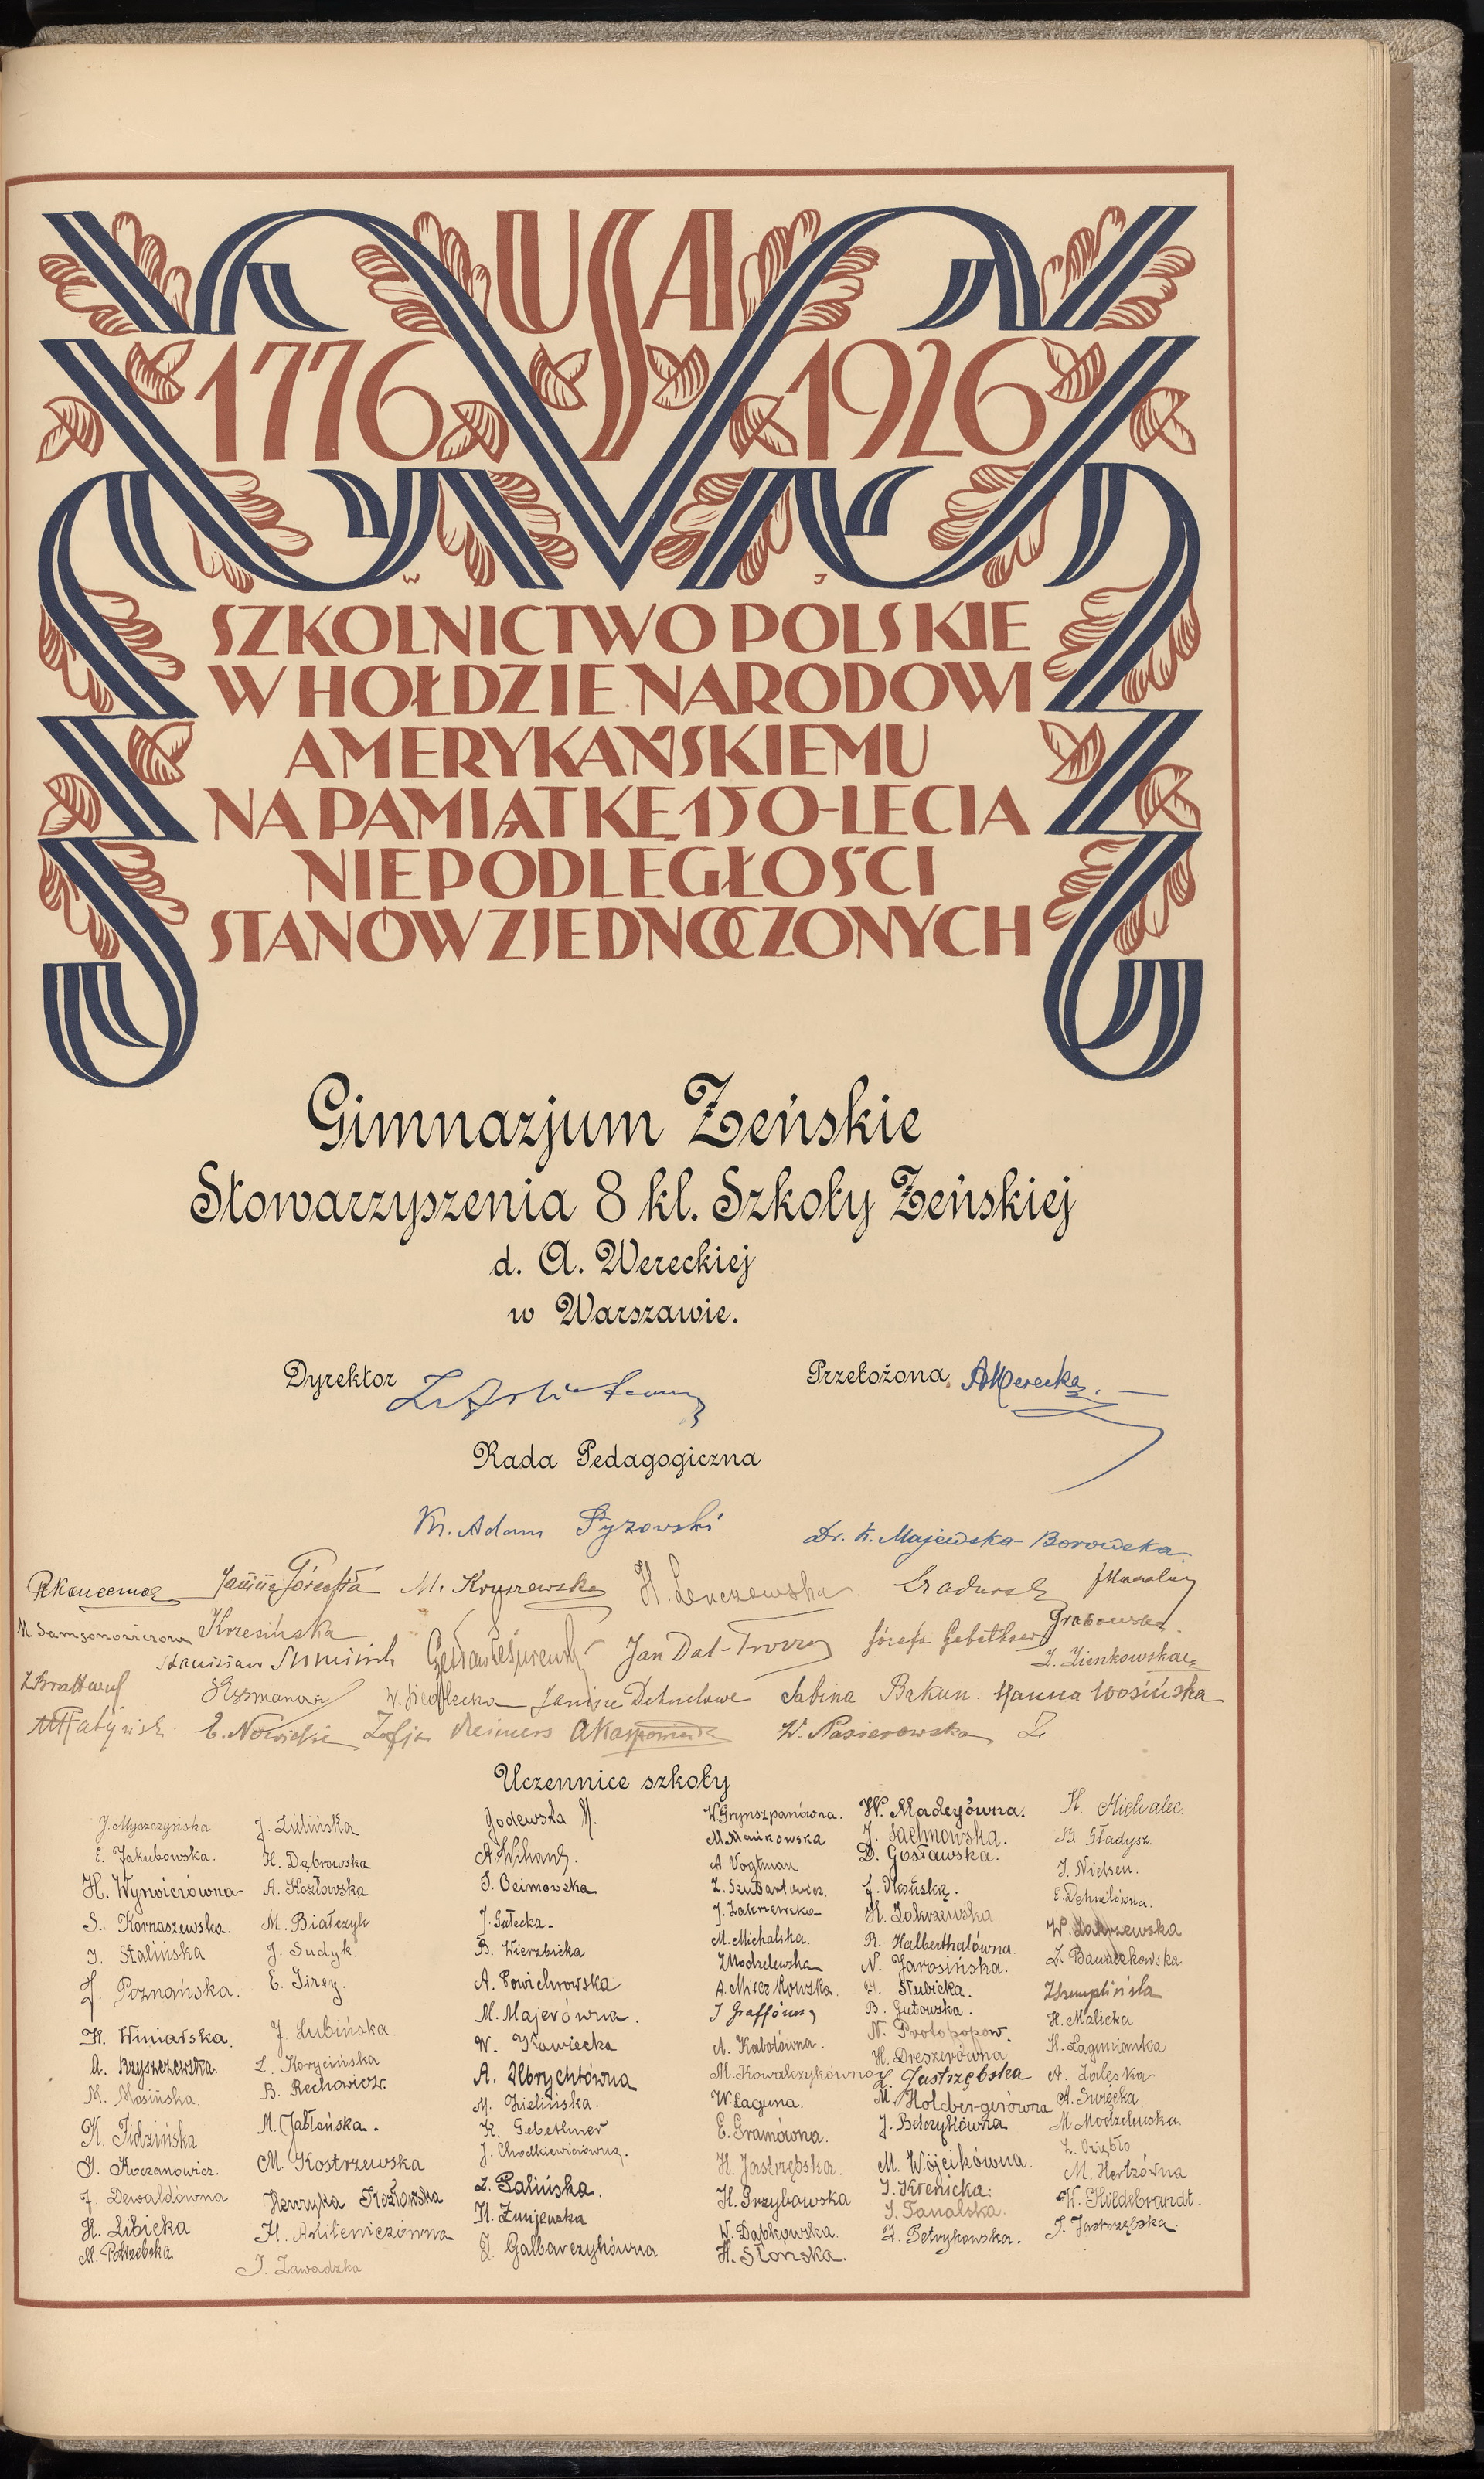 USA
1776 1926
W J
SZKOLNICTWO POLSKIE
W HOŁDZIE NARODOWI
AMERYKAŃSKIEMU
NA PAMIĄTKĘ 150-LECIA
NIEPODLEGŁOŚCI
STANÓW ZJEDNOCZONYCH
Gimnazjum Żeńskie
Stowarzyszenia 8 kl. Szkoły Żeńskiej
d. A. Wereckiej
w Warszawie.
Dyrektor
Przełożona A Werecka
Rada Pedagogiczna
Ks. Adam Pyzowski
Dr. K. Majewska-Borowska
M. Kruszewska H. Lenczewska
M Samsonowiczowa Krzesińska Grabowska
Stanisław Jan Józefa Z. Zienkowska
W. Siedlecka Janina Sabina Bakun. Hanna Wosińska
E. Nowicki Zofja Reimers W. Pasierowska Z.
Uczennice szkoły
J. Myszczyńska
E. Jakubowska.
H. Wyrwiczówna
S. Kornaszewska.
J. Stalińska
J. Poznańska.
H. Winiarska.
A. Kryszczewska.
M. Mosińska.
K. Fidzińska
J. Koczanowicz.
J. Dewaldówna
H. Libicka
M. Potrzebska
J. Lilińska
H. Dąbrowska
A. Kozłowska
M. Białczyk
J. Sudyk.
E. Jirey.
J. Lubińska.
L. Korycińska
B. Rechowicz.
M. Jabłońska.
M. Kostrzewska
Henryka Prozłowska
J. Zawadzka
Godewska M.
S. Ocimowska
J. Gałecka.
B. Wierzbicka
A. Powichrowska
M. Majerówna.
W. Kawiecka
A. Olbrychtówna
M. Zielińska.
K. Gebethner
J. Chodkiewiczówna.
L. Palińska.
H. Żmijewska
J. Galbarczykówna
W. Grynszpanówna.
M. Mańkowska
A Vogtman
Z. Szubartowicz.
J. Zakrzewska
M. Michalska.
Z Modzelewska
A. Mieczkowska.
J Graffówna
A. Kabotówna.
M. Kowalczykówna
W. Laguna.
E. Gramówna.
H. Jastrzębska.
H. Grzybowska
W. Dąbkowska.
H. Słońska.
W. Madeyówna.
J. Sachnowska.
D. Gosławska.
H. Zakrzewska
R. Halberthalówna.
N. Jarosińska.
H. Słubicka.
B. Gutowska.
N. Protopopow.
H. Dreszerówna
Z Jastrzębska
M. Holcbergerówna
J. Belczykówna
M. Wójcikówna.
J. Krenicka.
J. Tanalska.
Z. Petrykowska.
H. Michalec.
B. Gładysz.
J. Nielsen.
E. Dehnelówna.
W. Zakrzewska
Z. Banaczkowska
H. Malicka
H. Laguncianka
A. Zaleska
A. Święcka.
M. Modzelewska.
Z. Oziębło
M. Hertzówna
W. Hildebrandt.
J. Jastrzębska.